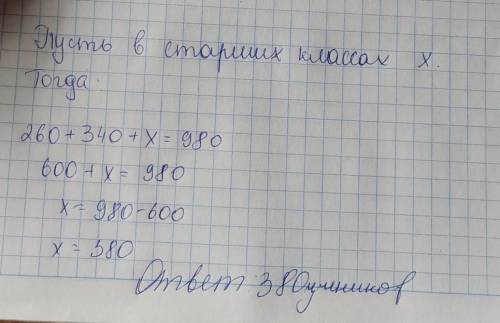 Пусть в старших классах x.
Тогда.
260 + 340 + x = 980
600 + x = 980
x = 980 - 600
x = 380
Ответ 380 учеников